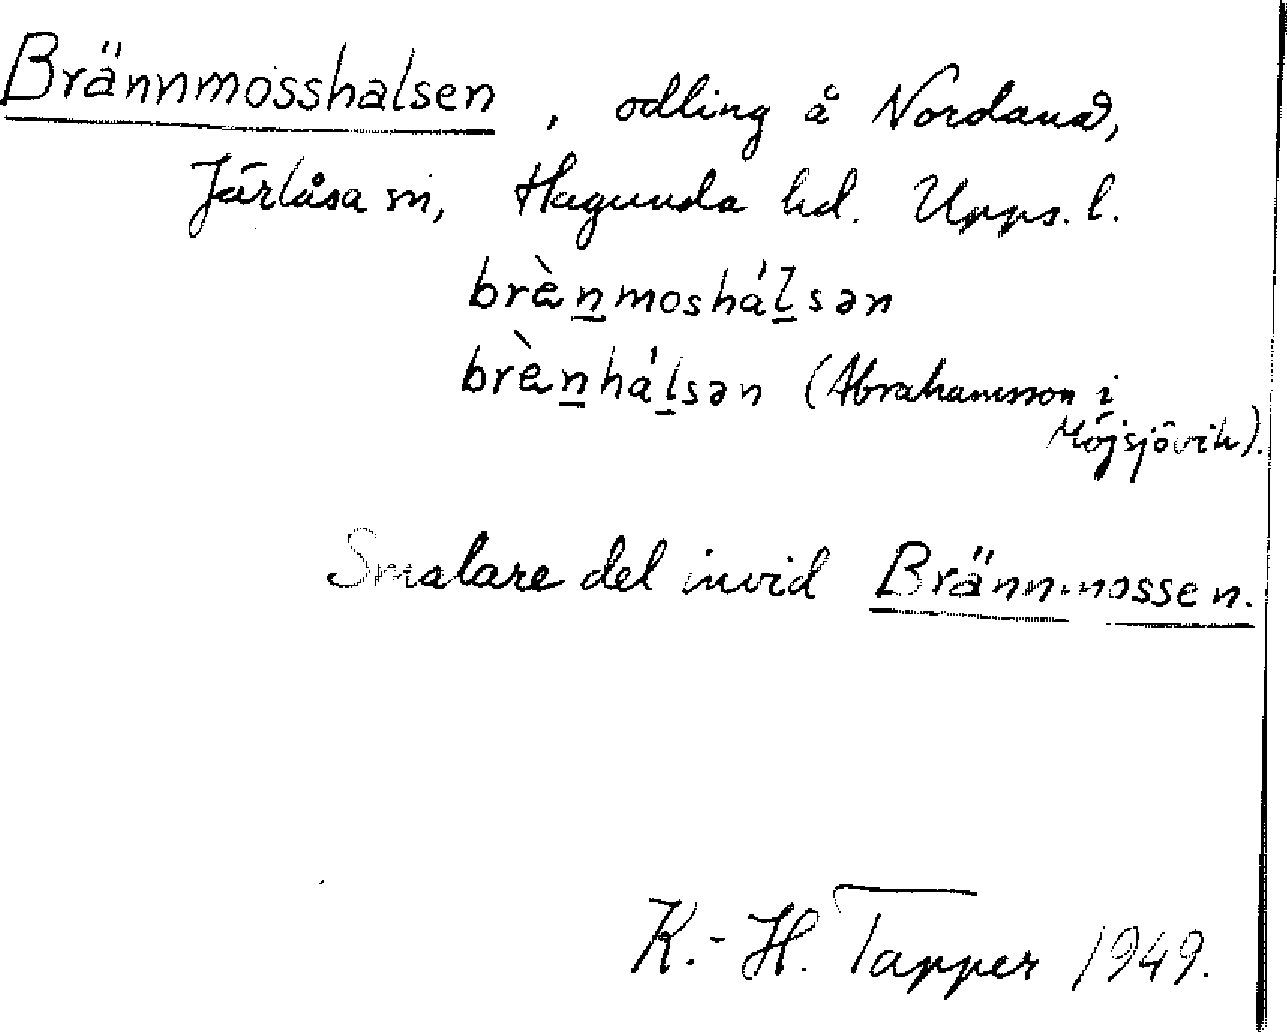 Brännmosshalsen, odling å Nordanå,
Järlåsa sn, Hagunda hd. Upps. l.
brènmoshálsən
brènhálsən (Abrahamsson i
Möjsjövik).
Smalare del invid Brännmossen.
K.-H. Tapper 1949.